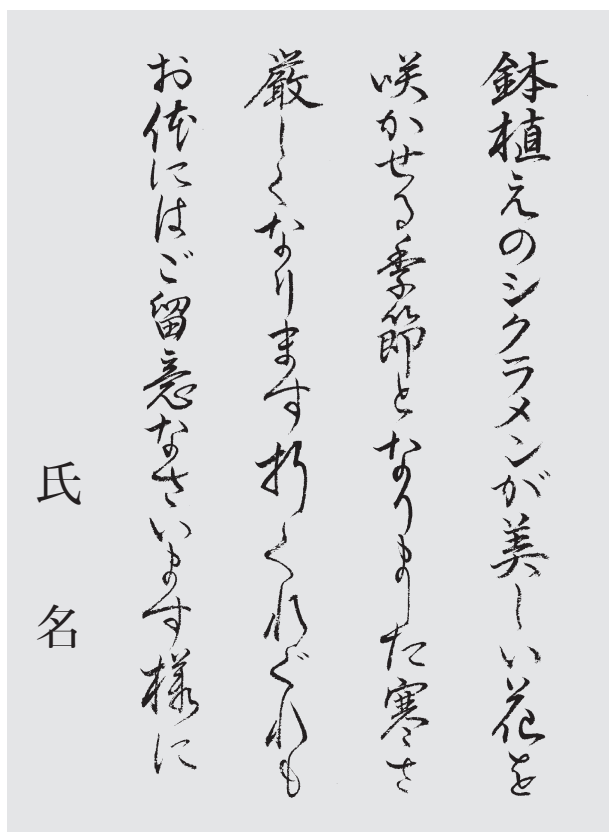 鉢植えのシクラメンが美しい花を
咲かせる季節となりました寒さ
厳しくなります折くれぐれも
お体にはご留意なさいます様に
氏名